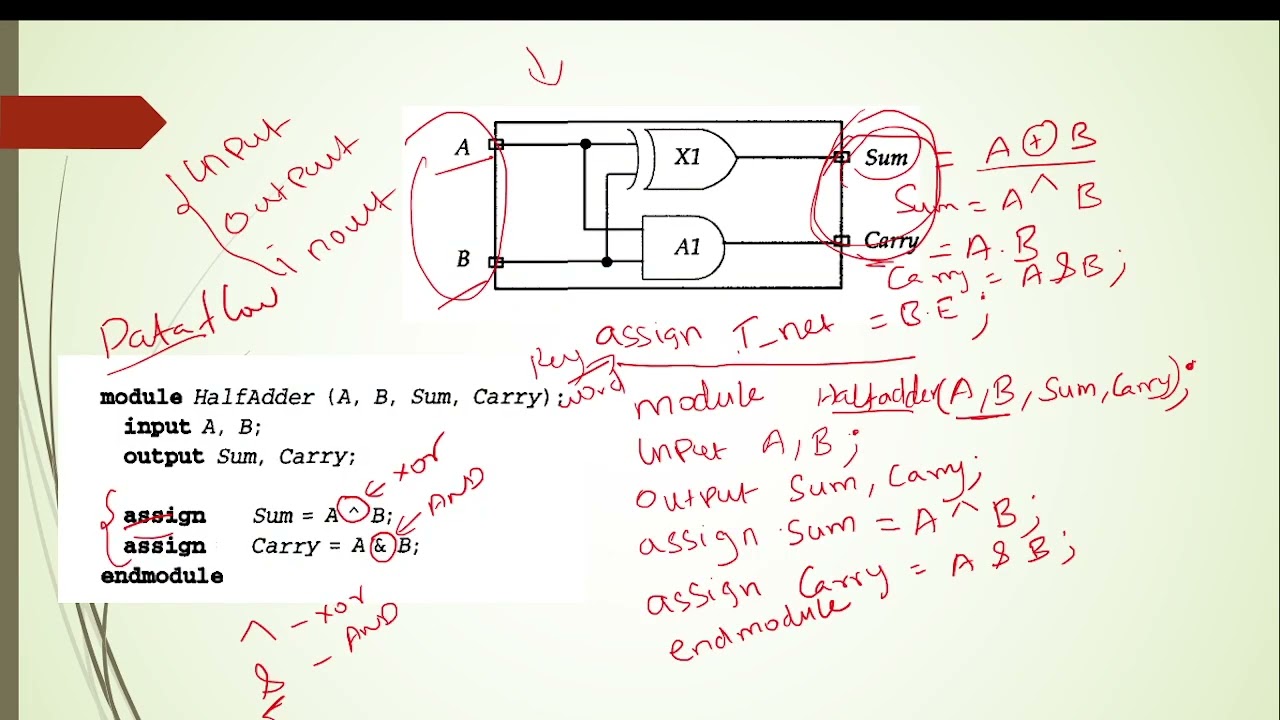 input
output
inout
A
B
X1
A1
Sum
Carry
= A ⊕ B
Sum = A ^ B
= A . B
Carry = A & B ;
Dataflow
Key
word
assign T_net = B.E ;
module HalfAdder (A, B, Sum, Carry);
input A, B;
output Sum, Carry;
assign Sum = A ^ B;
assign Carry = A & B;
endmodule
xor
AND
^ - xor
& - AND
module Halfadder(A, B, Sum, Carry);
input A, B ;
output Sum, Carry;
assign Sum = A ^ B ;
assign Carry = A & B ;
endmodule